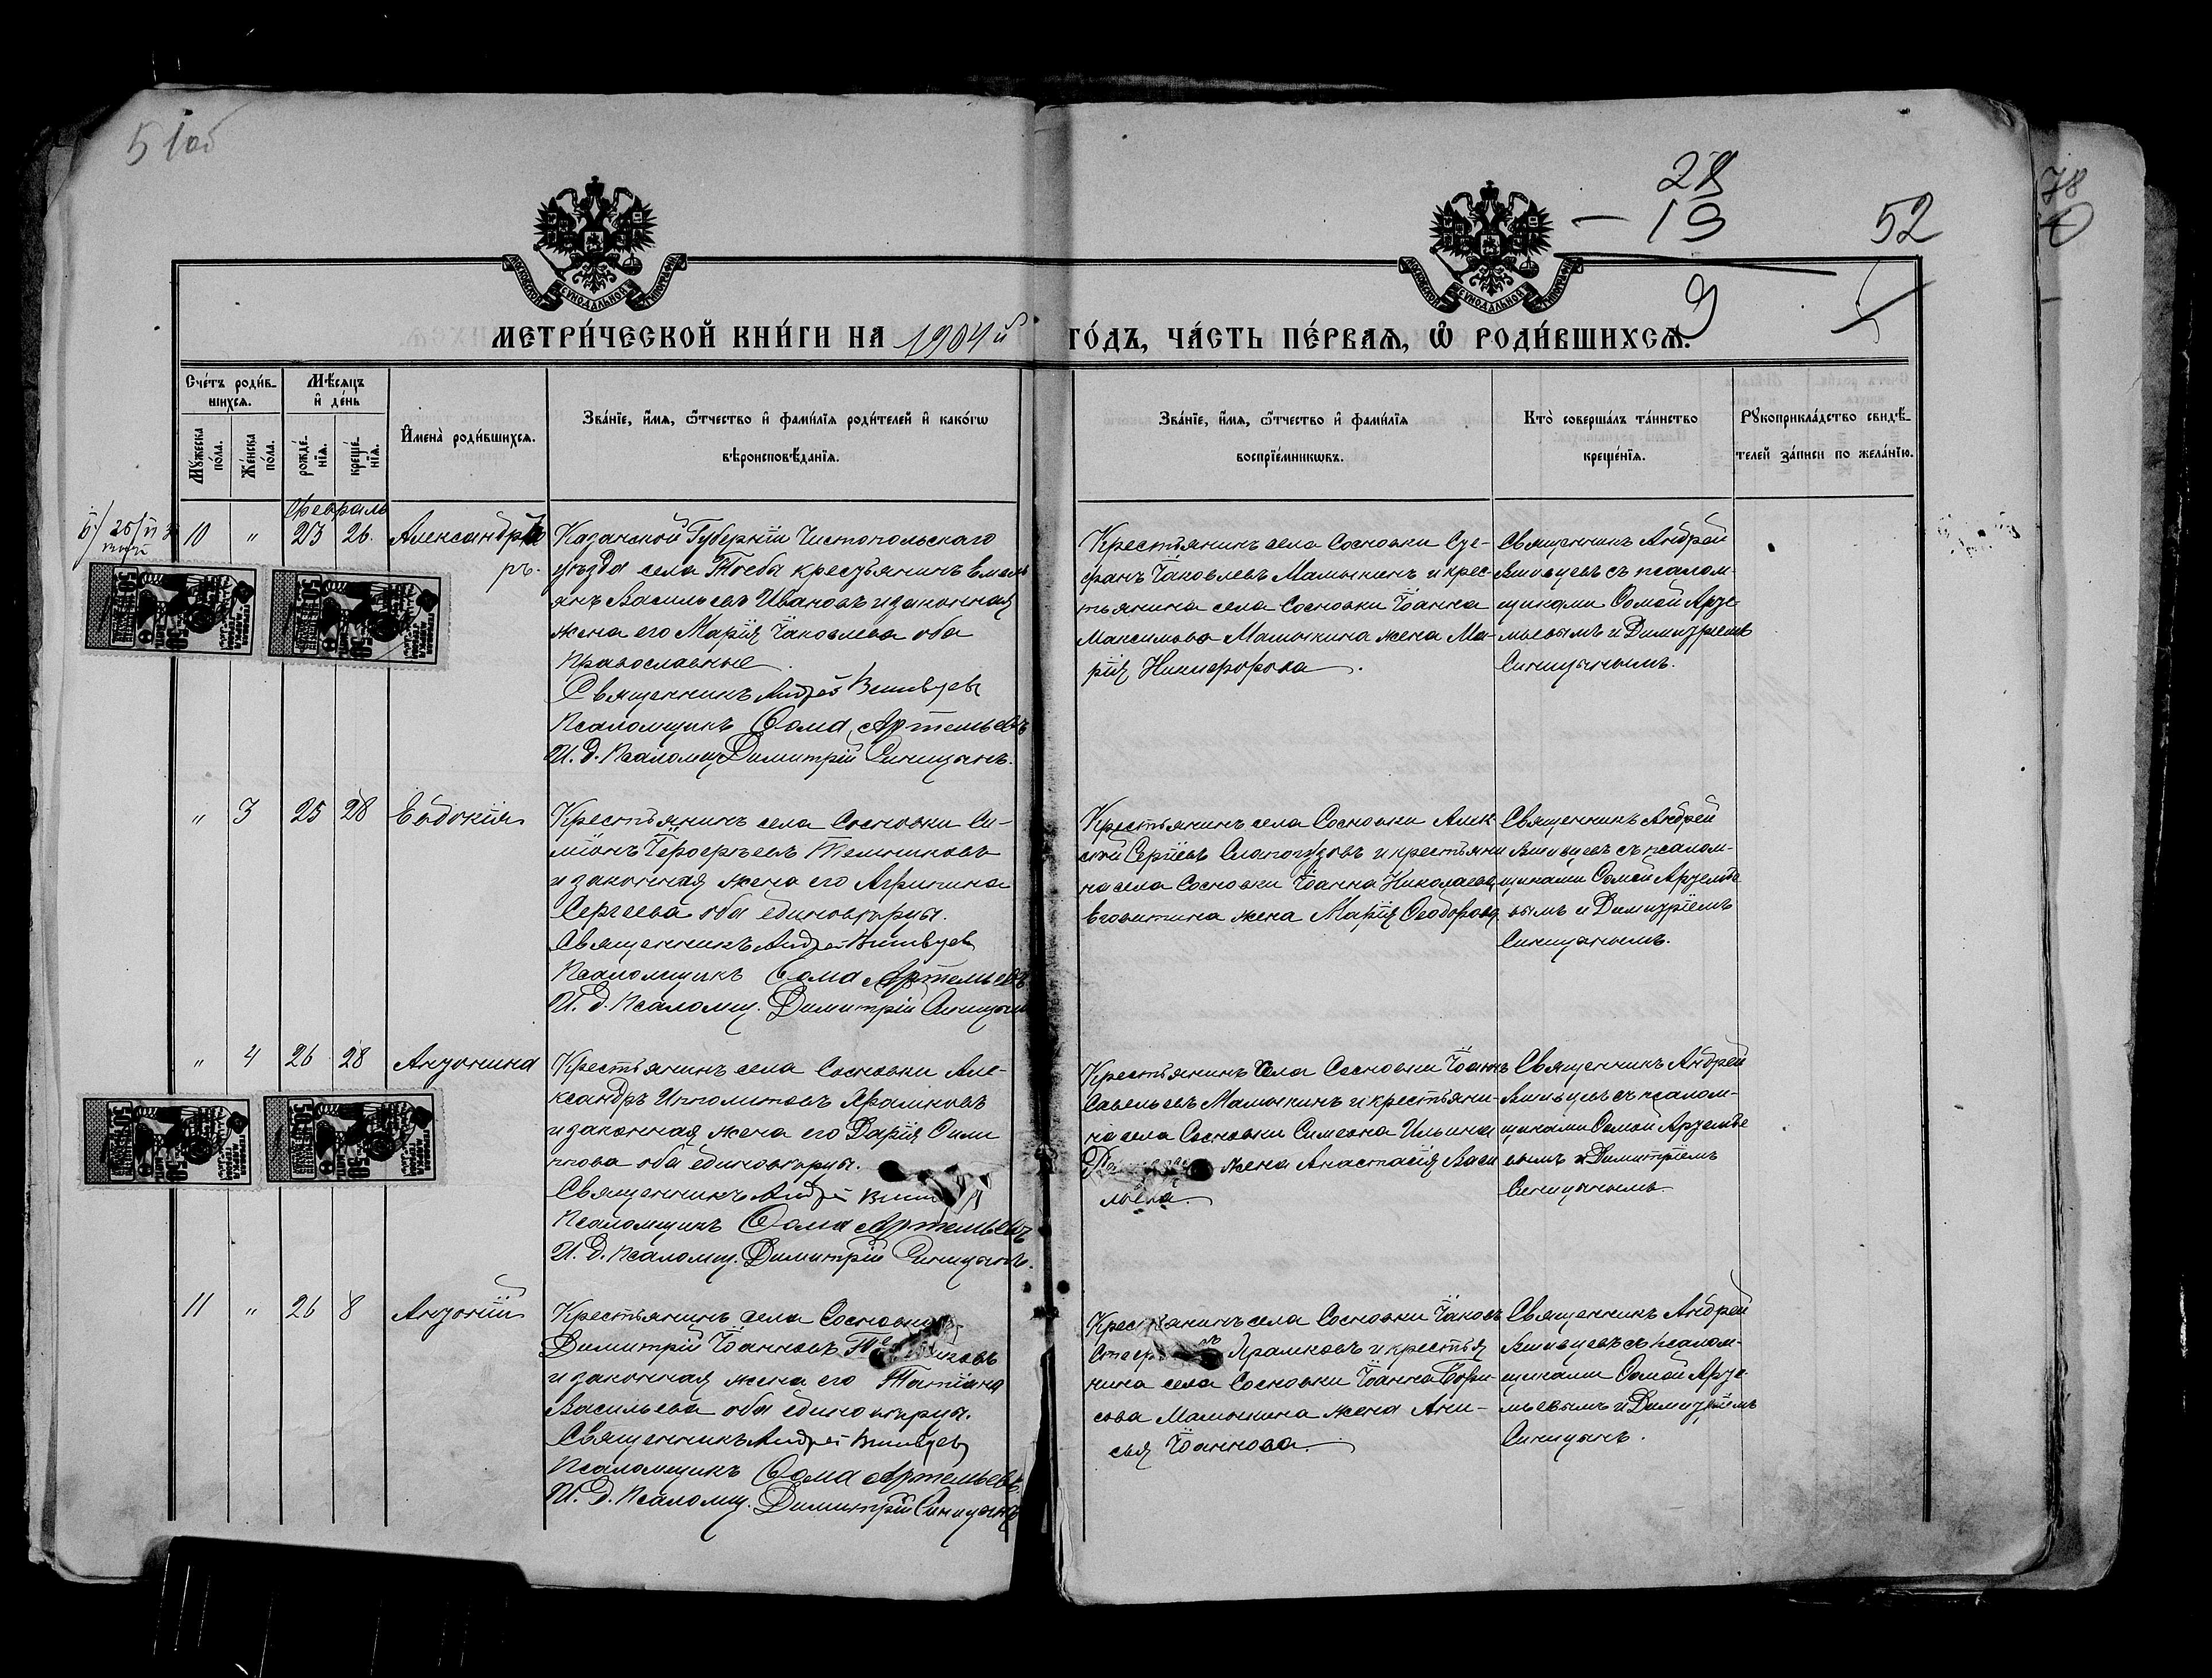 51об
28
- 19
9
52
78
МЕТРИ́ЧЕСКОЙ КНИ́ГИ НА 1904й ГО́ДЪ, ЧА́СТЬ ПЕ́РВАѦ, Ѡ҆ РОДИ́ВШИХСѦ.
Сче́тъ роди́в-
шихсѧ.
Мꙋ́жеска по́ла.
Же́нска по́ла.
Мѣ́сѧцъ и҆ де́нь
рожде́-
нїѧ.
креще́-
нїѧ.
И҆мена̀ роди́вшихсѧ.
Зва́нїе, и҆́мѧ, ѻ҆́тчество и҆ фами́лїѧ роди́телей и҆ како́гѡ
вѣроисповѣ́данїѧ.
Зва́нїе, и҆́мѧ, ѻ҆́тчество и҆ фами́лїѧ
воспрїе́мникѡвъ.
Кто̀ соверша́лъ та́инство
креще́нїѧ.
Рꙋкоприкла́дство свидѣ́-
телей за́писи по жела́нїю.
Февраль
10 " 23 26. Александръ
ръ.
Казанской Губернiи Чистопольскаго
уѣзда села крестьянинъ
янъ Васильевъ Ивановъ и законная
жена его Марiя Iаковлева оба
православные
Священникъ Андрей
Псаломщикъ Ѳома Артемьевъ
И. д. Псаломщ Димитрiй Синицынъ.
Крестьянинъ села Сосновки Сте-
фанъ Iаковлевъ Мамыкинъ и крес-
тьянина села Сосновки Iоанна
Максимова Мамыкина жена Ма-
рiя Никифорова.
Священникъ Андрей
съ псалом-
щиками Ѳомой Арте
мьевымъ и Димитрiемъ
Синицынымъ.
" 3 25 28 Евдокiя
Крестьянинъ села Сосновки Си-
мiонъ Iерофѣевъ Телышковъ
и законная жена его Агрипина
Сергеева оба единовѣрцы.
Священникъ Андрей
Псаломщикъ Ѳома Артемьевъ
И. д. Псаломщ. Димитрiй Синицынъ
Крестьянинъ села Сосновки Алек
сѣй Сергiевъ и крестьяни
на села Сосновки Iоанна Николаева
жена Марiя Ѳеодорова
Священникъ Андрей
съ псалом-
щиками Ѳомой Артемье
вымъ и Димитрiемъ
Синицынымъ.
" 4 26 28 Антонина
Крестьянинъ села Сосновки Але-
ксандръ Ипполитовъ Храмковъ
и законная жена его Дарiя Фили
ппова оба единовѣрцы.
Священникъ Андрей
Псаломщикъ Ѳома Артемьевъ
И. д. Псаломщ. Димитрiй Синицынъ.
Крестьянинъ села Сосновки Iоаннъ
Савельевъ Мамыкинъ и крестьяни-
на села Сосновки Симеона Ильина
жена Анастасiя Васи
льева.
Священникъ Андрей
съ псалом-
щиками Ѳомой Артемье
вымъ и Димитрiемъ
Синицынымъ.
11 " 26 8 Антонiй
Крестьянинъ села Сосновки
Димитрiй Iоанновъ
и законная жена его Татiана
Васильева оба единовѣрцы.
Священникъ Андрей
Псаломщикъ Ѳома Артемьевъ
И. д. Псаломщ. Димитрiй Синицынъ
Крестьянинъ села Сосновки Iаковъ
Храмковъ и крестья
нина села Сосновки Iоанна Бори-
сова Мамыкина жена Ани-
сья Iоаннова.
Священникъ Андрей
съ псалом-
щиками Ѳомой Арте-
мьевымъ и Димитрiемъ
Синицынъ.